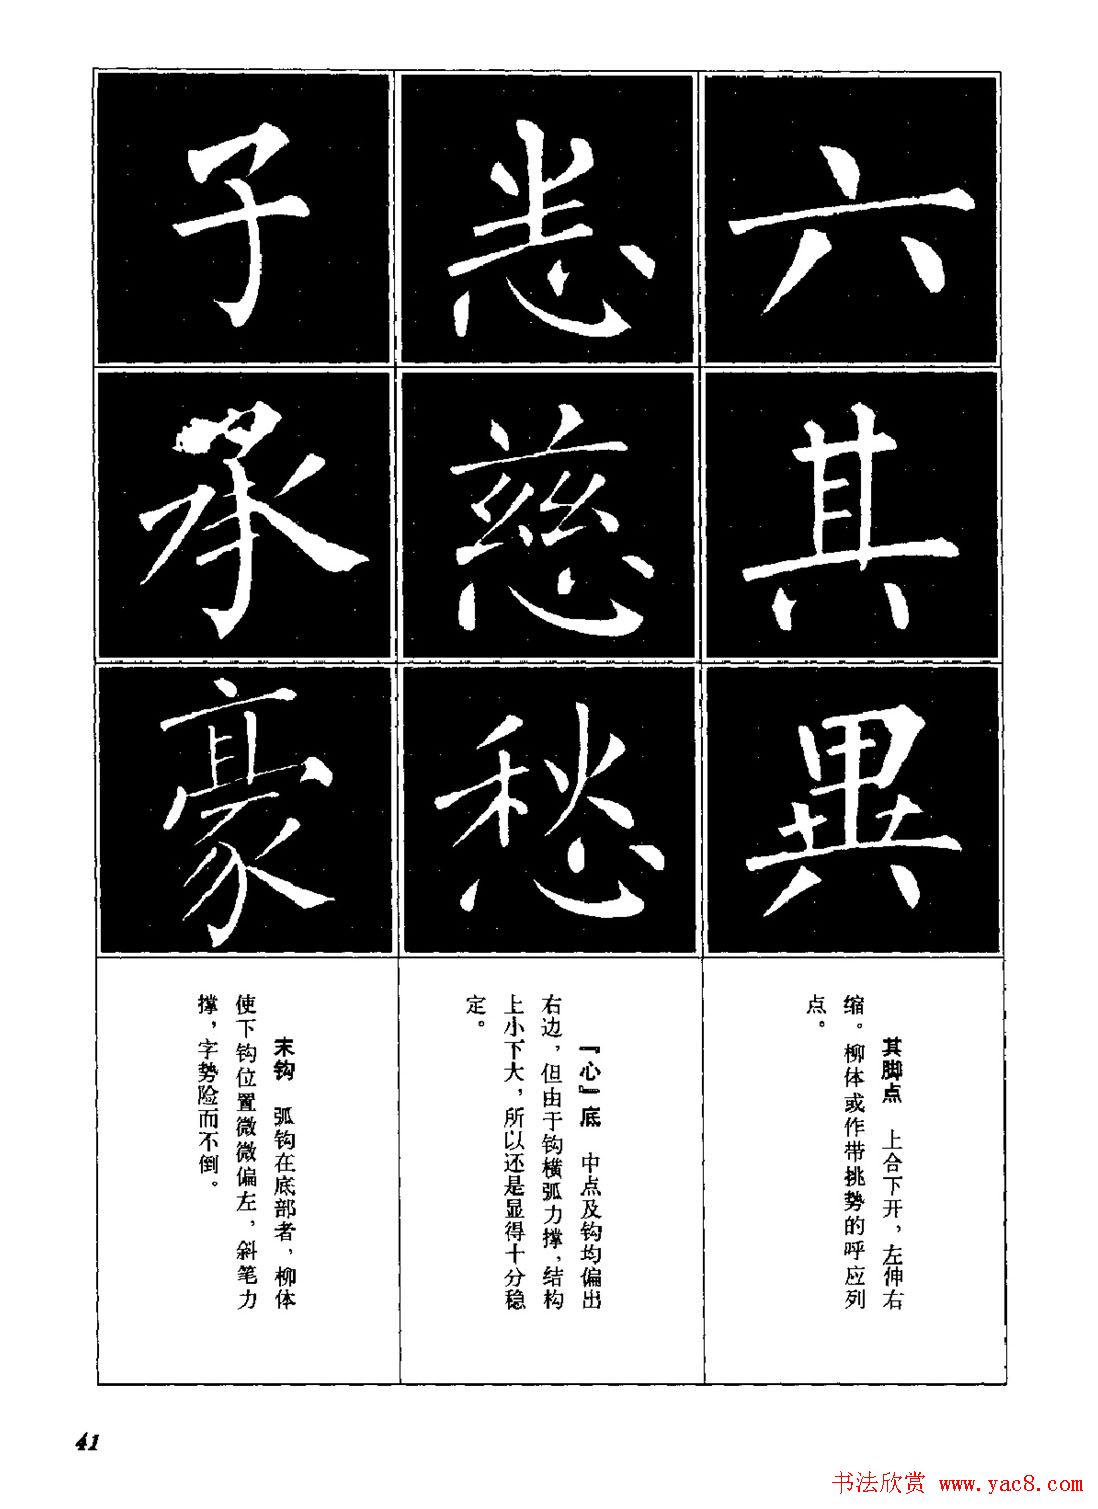 六
其
異
其脚点　上合下开，左伸右
缩。柳体或作带挑势的呼应列
点。
恙
慈
愁
『心』底　中点及钩均偏出
右边，但由于钩横弧力撑，结构
上小下大，所以还是显得十分稳
定。
子
承
豪
末钩　弧钩在底部者，柳体
使下钩位置微微偏左，斜笔力
撑，字势险而不倒。
41
书法欣赏 www.yac8.com